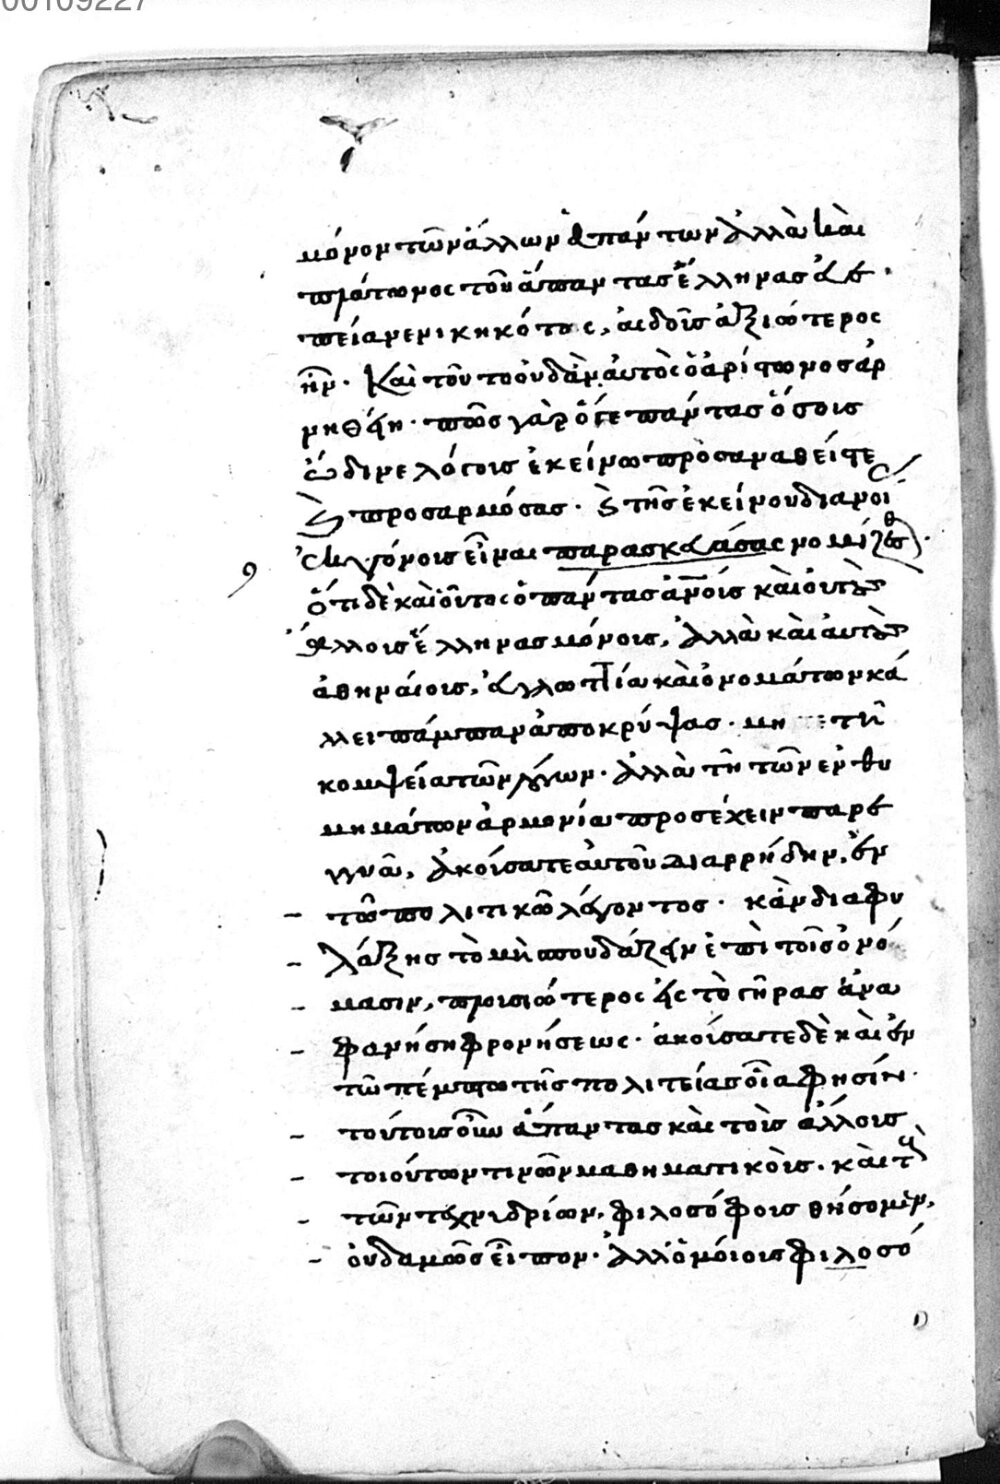 00109227
μόνον τῶν ἄλλων ἁπάντων ἀλλὰ καὶ
πλάτωνος τοῦ ἅπαντας ἕλληνας
νενικηκότος, αἰδοῖς ἀξιώτερος
ἦν. Καὶ τοῦτο οὐδ' ἂν αὐτὸς ὁ ἀρίστωνος ἀρ
νηθείη. πῶς γὰρ ὅ γε πάντας ὅσοις
ἐκείνω προσαναθεὶς
προσαρμόσας. τῆς ἐκείνου διανοί
γόνοις εἶναι παρασκευάσας νομίζεσθ.
ὅτι δὲ καὶ οὗτος ὁ πάντας ἀν̅οις καὶ οὐ τοῖς
ἄλλοις ἕλλησι μόνοις, ἀλλὰ καὶ αὐτοῖς
ἀθηναίοις, καὶ ὀνομάτων κά
λλει πάμπαν ἀποκρύψας. μὴ τῆ
κομψεία τῶν λόγων. ἀλλὰ τῆ τῶν ἐνθυ
μημάτων ἁρμονία προσέχειν παρε
γγυᾶ, ἀκούσατε αὐτοῦ διαρρήδην, ἐν
τῶ πολιτικῶ λέγοντος. κἂν διαφυ
λάξης τὸ μὴ σπουδάζειν ἐπὶ τοῖς ὀνό
μασιν, πλουσιώτερος εἰς τὸ γῆρας ἀνα
φανήση φρονήσεως. ἀκούσατε δὲ καὶ ἐν
τῶ πέμπτω τῆς πολιτείας οἷα φησίν.
τούτους οὖν ἅπαντας καὶ τοὺς ἄλλους
τοιούτων τινῶν μαθηματικοὺς. καὶ τ
τῶν τεχνυδρίων, φιλοσόφους θήσομεν,
οὐδαμῶς εἶπον. ἀλλ' ὁμοίους φιλοσό